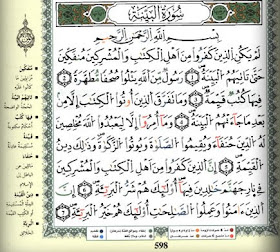 سُورَةُ الْبَيِّنَةِ
بِسْمِ اللَّهِ الرَّحْمَٰنِ الرَّحِيمِ
لَمْ يَكُنِ الَّذِينَ كَفَرُوا مِنْ أَهْلِ الْكِتَٰبِ وَالْمُشْرِكِينَ مُنفَكِّينَ
حَتَّىٰ تَأْتِيَهُمُ الْبَيِّنَةُ ١ رَسُولٌ مِّنَ اللَّهِ يَتْلُوا صُحُفًا مُّطَهَّرَةً ٢
فِيهَا كُتُبٌ قَيِّمَةٌ ٣ وَمَا تَفَرَّقَ الَّذِينَ أُوتُوا الْكِتَٰبَ إِلَّا مِنۢ
بَعْدِ مَا جَآءَتْهُمُ الْبَيِّنَةُ ٤ وَمَآ أُمِرُوٓا إِلَّا لِيَعْبُدُوا اللَّهَ مُخْلِصِينَ
لَهُ الدِّينَ حُنَفَآءَ وَيُقِيمُوا الصَّلَوٰةَ وَيُؤْتُوا الزَّكَوٰةَ وَذَٰلِكَ دِينُ
الْقَيِّمَةِ ٥ إِنَّ الَّذِينَ كَفَرُوا مِنْ أَهْلِ الْكِتَٰبِ وَالْمُشْرِكِينَ
فِي نَارِ جَهَنَّمَ خَٰلِدِينَ فِيهَآ أُو۟لَٰٓئِكَ هُمْ شَرُّ الْبَرِيَّةِ ٦ إِنَّ
الَّذِينَ ءَامَنُوا وَعَمِلُوا الصَّٰلِحَٰتِ أُو۟لَٰٓئِكَ هُمْ خَيْرُ الْبَرِيَّةِ ٧
598